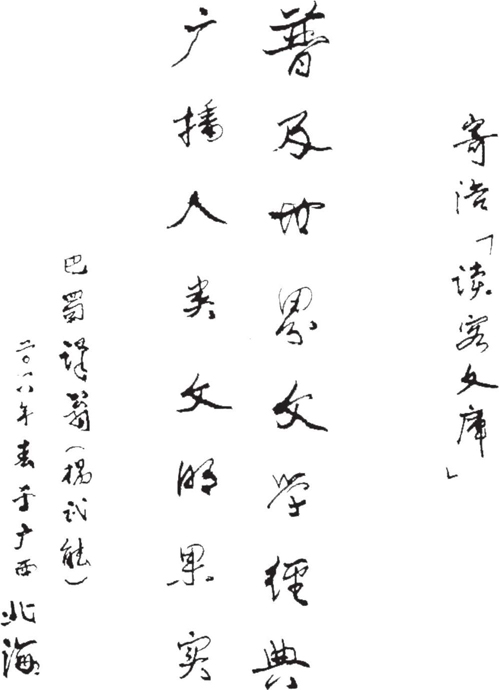 寄语「读客文库」
普及世界文学经典
广播人类文明果实
巴蜀译翁(杨武能)
二〇一八年春于广西北海